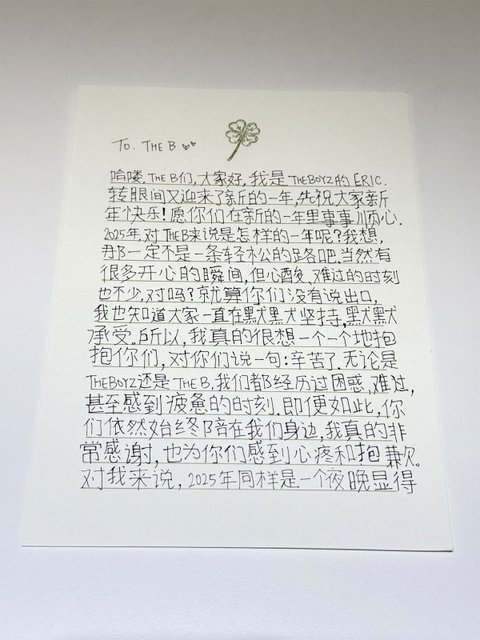 To. THE B ♡♡
哈喽, THE B们, 大家好, 我是 THEBOYZ的 ERIC.
转眼间又迎来了新的一年, 先祝大家新
年快乐! 愿你们在新的一年里事事顺心.
2025年, 对THEB来说是怎样的一年呢? 我想,
那一定不是一条轻松的路吧. 当然有
很多开心的瞬间, 但心酸、难过的时刻
也不少, 对吗? 就算你们没有说出口,
我也知道大家一直在默默坚持, 默默
承受. 所以, 我真的很想一个一个地抱
抱你们, 对你们说一句: 辛苦了. 无论是
THEBOYZ 还是 THE B, 我们都经历过困惑, 难过,
甚至感到疲惫的时刻. 即便如此, 你
们依然始终陪在我们身边, 我真的非
常感谢, 也为你们感到心疼和抱歉.
对我来说, 2025年同样是一个夜晚显得